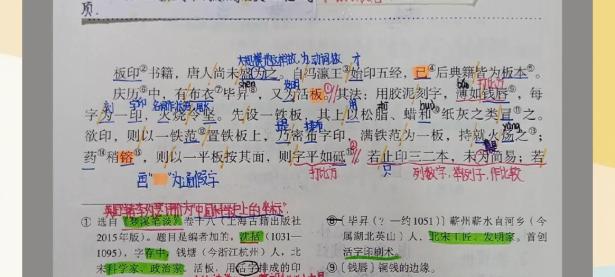 项。
大规模地这样做，为动词，做 才
板印②书籍，唐人尚未盛为之。自冯瀛王③始印五经，已④后典籍皆为板本⑤。
庆历⑥中，有布衣⑦毕昇⑧，又为活板。其法：用胶泥刻字，薄如钱唇⑨，每
字为一印，火烧令坚。先设一铁板，其上以松脂、蜡和纸灰之类冒之。
欲印，则以一铁范置铁板上，乃密布字印，满铁范为一板，持就火炀之；
药稍镕，则以一平板按其面，则字平如砥。若止印三二本，未为简易；若
为通假字
打比方
只
列数字，举例子，作比较
① 选自《梦溪笔谈》卷十八（上海古籍出版社
2015年版）。题目是编者加的。沈括（1031—
1095），字存中，钱塘（今浙江杭州）人，北
宋科学家、政治家。活板，用活字排成的印
⑧〔毕昇（？—约1051）〕蕲州蕲水直河乡（今
属湖北英山）人，北宋工匠、发明家，首创
活字印刷术。
⑨〔钱唇〕铜钱的边缘。